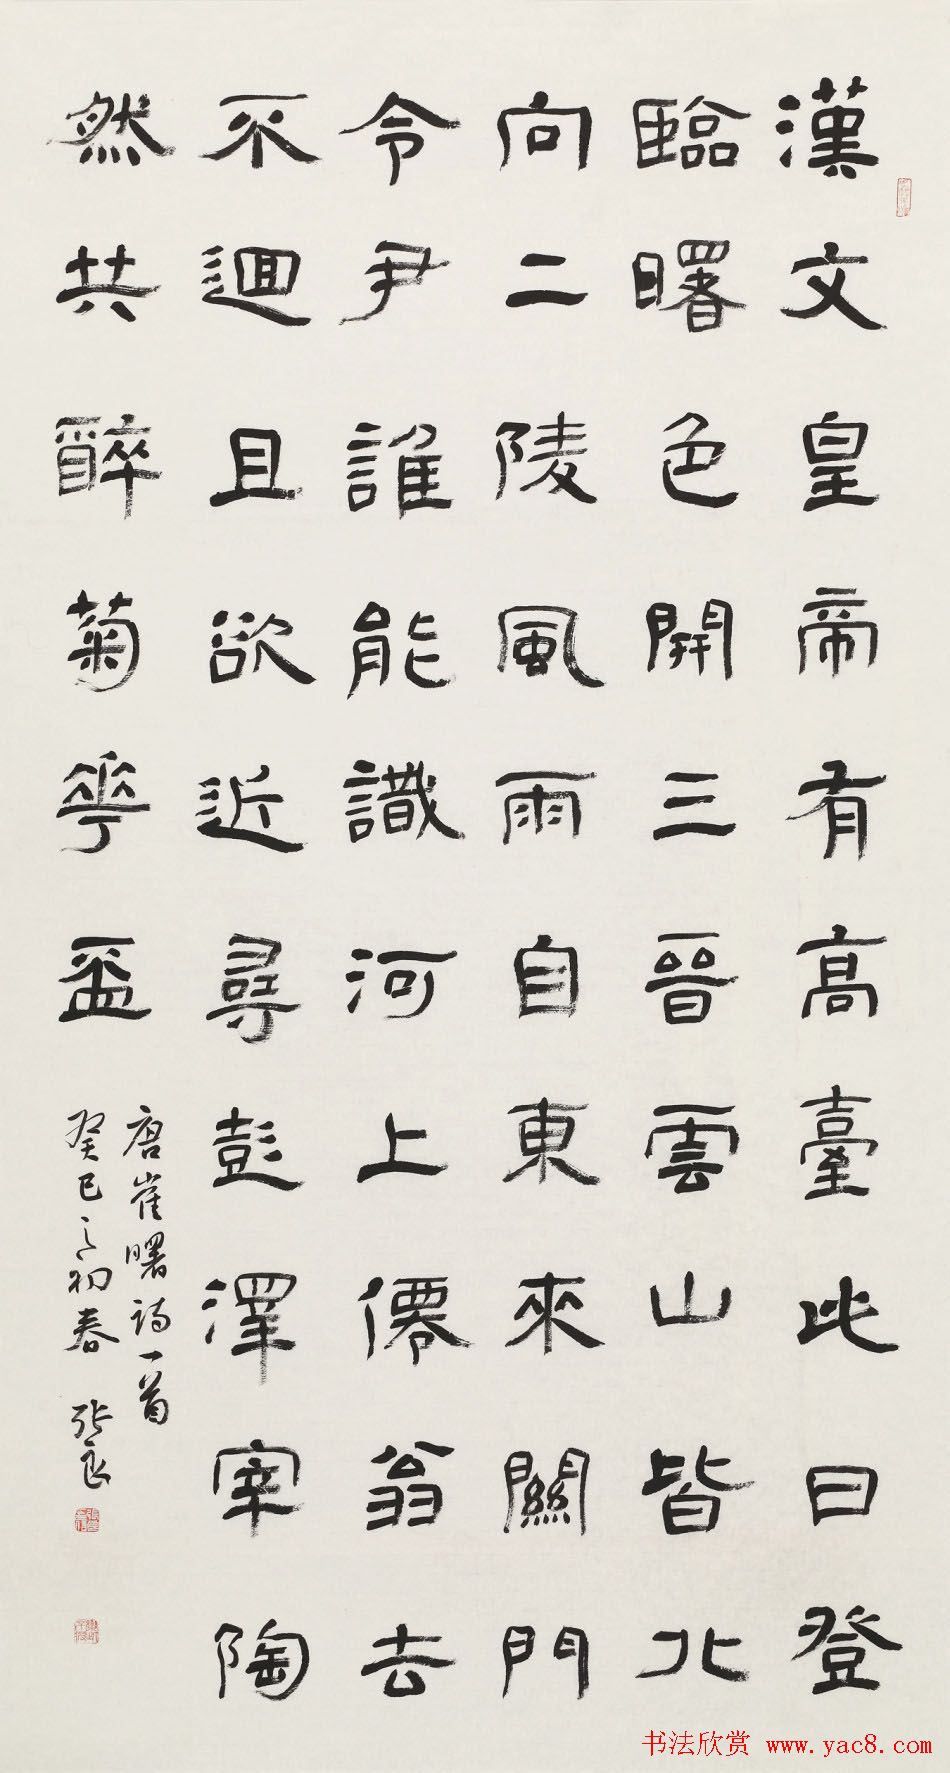 漢文皇帝有高臺此日登
臨曙色開三晉雲山皆北
向二陵風雨自東來關門
令尹誰能識河上僊翁去
不迴且欲近尋彭澤宰陶
然共醉菊華盃
唐崔曙詩一首
癸巳之初春 張良
书法欣赏 www.yac8.com